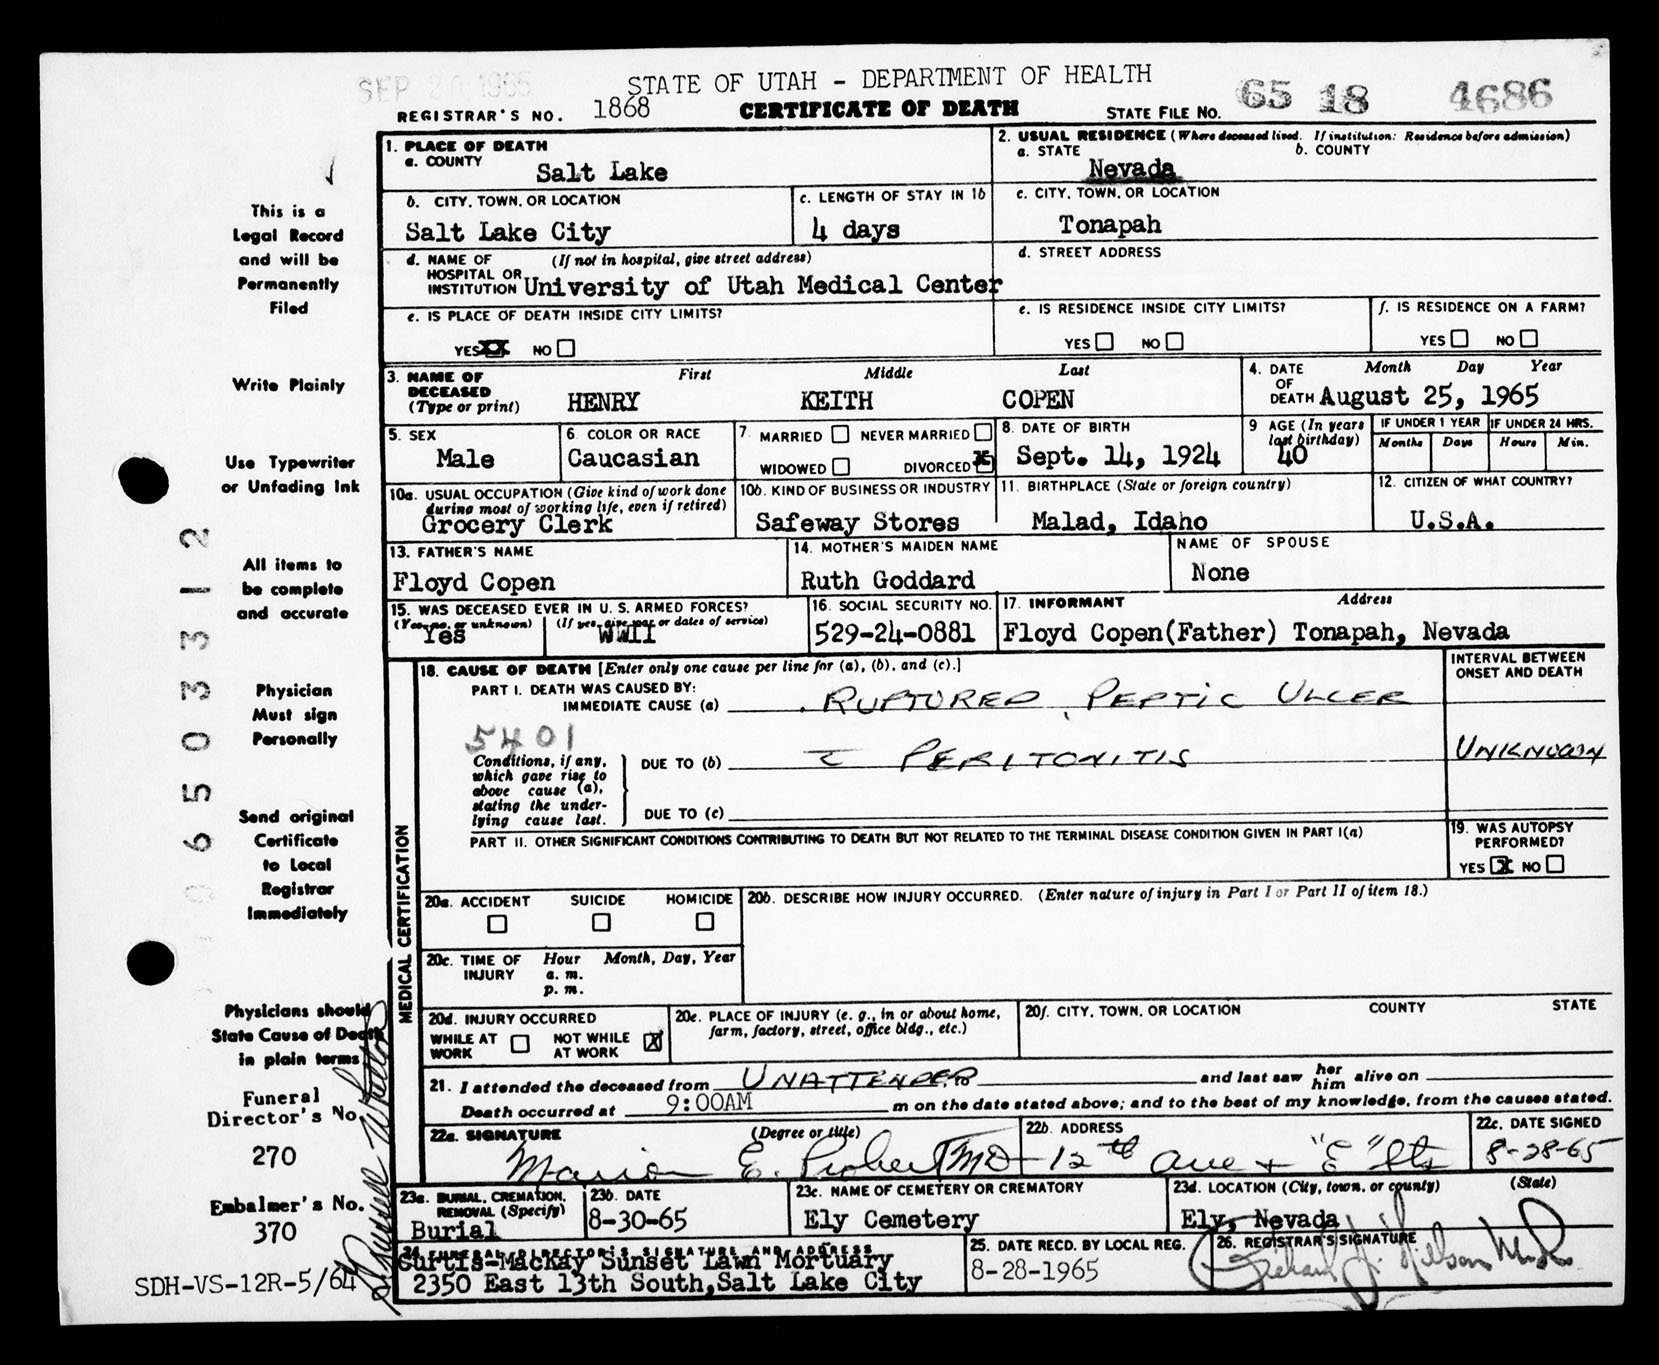 SEP 20 1965
STATE OF UTAH - DEPARTMENT OF HEALTH
REGISTRAR'S NO. 1868 CERTIFICATE OF DEATH STATE FILE NO. 65 18 4686
This is a
Legal Record
and will be
Permanently
Filed
Write Plainly
Use Typewriter
or Unfading Ink
All items to
be complete
and accurate
Physician
Must sign
Personally
Send original
Certificate
to Local
Registrar
Immediately
Physicians should
State Cause of Death
in plain terms
Funeral
Director's No.
270
Embalmer's No.
370
SDH-VS-12R-5/64
0650331 2
1. PLACE OF DEATH
a. COUNTY Salt Lake
2. USUAL RESIDENCE (Where deceased lived. If institution: Residence before admission)
a. STATE Nevada b. COUNTY
b. CITY, TOWN, OR LOCATION Salt Lake City
c. LENGTH OF STAY IN 1b 4 days
c. CITY, TOWN, OR LOCATION Tonapah
d. NAME OF HOSPITAL OR INSTITUTION (If not in hospital, give street address) University of Utah Medical Center
d. STREET ADDRESS
e. IS PLACE OF DEATH INSIDE CITY LIMITS? YES XX NO
e. IS RESIDENCE INSIDE CITY LIMITS? YES NO
f. IS RESIDENCE ON A FARM? YES NO
3. NAME OF DECEASED (Type or print) First Middle Last
HENRY KEITH COPEN
4. DATE OF DEATH Month Day Year
August 25, 1965
5. SEX Male
6. COLOR OR RACE Caucasian
7. MARRIED NEVER MARRIED
WIDOWED DIVORCED X
8. DATE OF BIRTH Sept. 14, 1924
9 AGE (In years last birthday) 40
IF UNDER 1 YEAR Months Days
IF UNDER 24 HRS. Hours Min.
10a. USUAL OCCUPATION (Give kind of work done during most of working life, even if retired) Grocery Clerk
10b. KIND OF BUSINESS OR INDUSTRY Safeway Stores
11. BIRTHPLACE (State or foreign country) Malad, Idaho
12. CITIZEN OF WHAT COUNTRY? U.S.A.
13. FATHER'S NAME Floyd Copen
14. MOTHER'S MAIDEN NAME Ruth Goddard
NAME OF SPOUSE None
15. WAS DECEASED EVER IN U. S. ARMED FORCES?
(Yes, no, or unknown) Yes (If yes, give war or dates of service) WWII
16. SOCIAL SECURITY NO. 529-24-0881
17. INFORMANT Address
Floyd Copen(Father) Tonapah, Nevada
MEDICAL CERTIFICATION
18. CAUSE OF DEATH [Enter only one cause per line for (a), (b), and (c).]
INTERVAL BETWEEN ONSET AND DEATH
PART I. DEATH WAS CAUSED BY:
IMMEDIATE CAUSE (a) RUPTURED PEPTIC ULCER
5401
Conditions, if any, which gave rise to above cause (a), stating the underlying cause last.
DUE TO (b) c̄ PERITONITIS UNKNOWN
DUE TO (c)
PART II. OTHER SIGNIFICANT CONDITIONS CONTRIBUTING TO DEATH BUT NOT RELATED TO THE TERMINAL DISEASE CONDITION GIVEN IN PART I(a)
19. WAS AUTOPSY PERFORMED?
YES X NO
20a. ACCIDENT SUICIDE HOMICIDE
20b. DESCRIBE HOW INJURY OCCURRED. (Enter nature of injury in Part I or Part II of item 18.)
20c. TIME OF INJURY Hour Month, Day, Year
a. m.
p. m.
20d. INJURY OCCURRED
WHILE AT WORK NOT WHILE AT WORK X
20e. PLACE OF INJURY (e. g., in or about home, farm, factory, street, office bldg., etc.)
20f. CITY, TOWN, OR LOCATION COUNTY STATE
21. I attended the deceased from UNATTENDED to and last saw her him alive on
Death occurred at 9:00AM m on the date stated above; and to the best of my knowledge, from the causes stated.
22a. SIGNATURE (Degree or title) Marion E. Probert MD
22b. ADDRESS 12th Ave + "E" Sts
22c. DATE SIGNED 8-28-65
23a. BURIAL, CREMATION, REMOVAL (Specify) Burial
23b. DATE 8-30-65
23c. NAME OF CEMETERY OR CREMATORY Ely Cemetery
23d. LOCATION (City, town, or county) (State) Ely, Nevada
24. FUNERAL DIRECTOR'S SIGNATURE AND ADDRESS
Curtis-MacKay Sunset Lawn Mortuary
2350 East 13th South,Salt Lake City
25. DATE RECD. BY LOCAL REG. 8-28-1965
26. REGISTRAR'S SIGNATURE